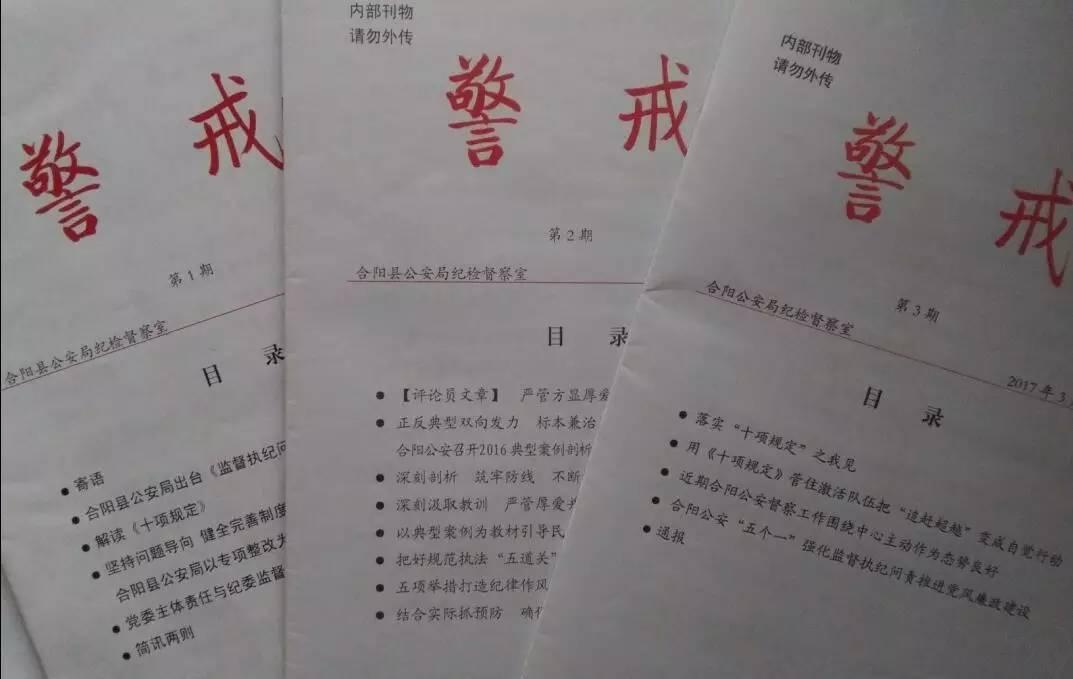 警戒
第1期
合阳县公安局纪检督察室
目录
寄语
合阳县公安局出台《监督执纪问
解读《十项规定》
坚持问题导向 健全完善制度
合阳县公安局以专项整改为
党委主体责任与纪委监督
简讯两则
内部刊物
请勿外传
警戒
第2期
合阳县公安局纪检督察室
目录
【评论员文章】 严管方显厚爱
正反典型双向发力 标本兼治
合阳公安召开2016典型案例剖析
深刻剖析 筑牢防线 不断
深刻汲取教训 严管厚爱
以典型案例为教材引导民
把好规范执法“五道关”
五项举措打造纪律作风
结合实际抓预防 确
内部刊物
请勿外传
警戒
第3期
合阳公安局纪检督察室
2017年3
目录
落实“十项规定”之我见
用《十项规定》管住激活队伍把“追赶超越”变成自觉行动
近期合阳公安督察工作围绕中心主动作为态势良好
合阳公安“五个一”强化监督执纪问责推进党风廉政建设
通报